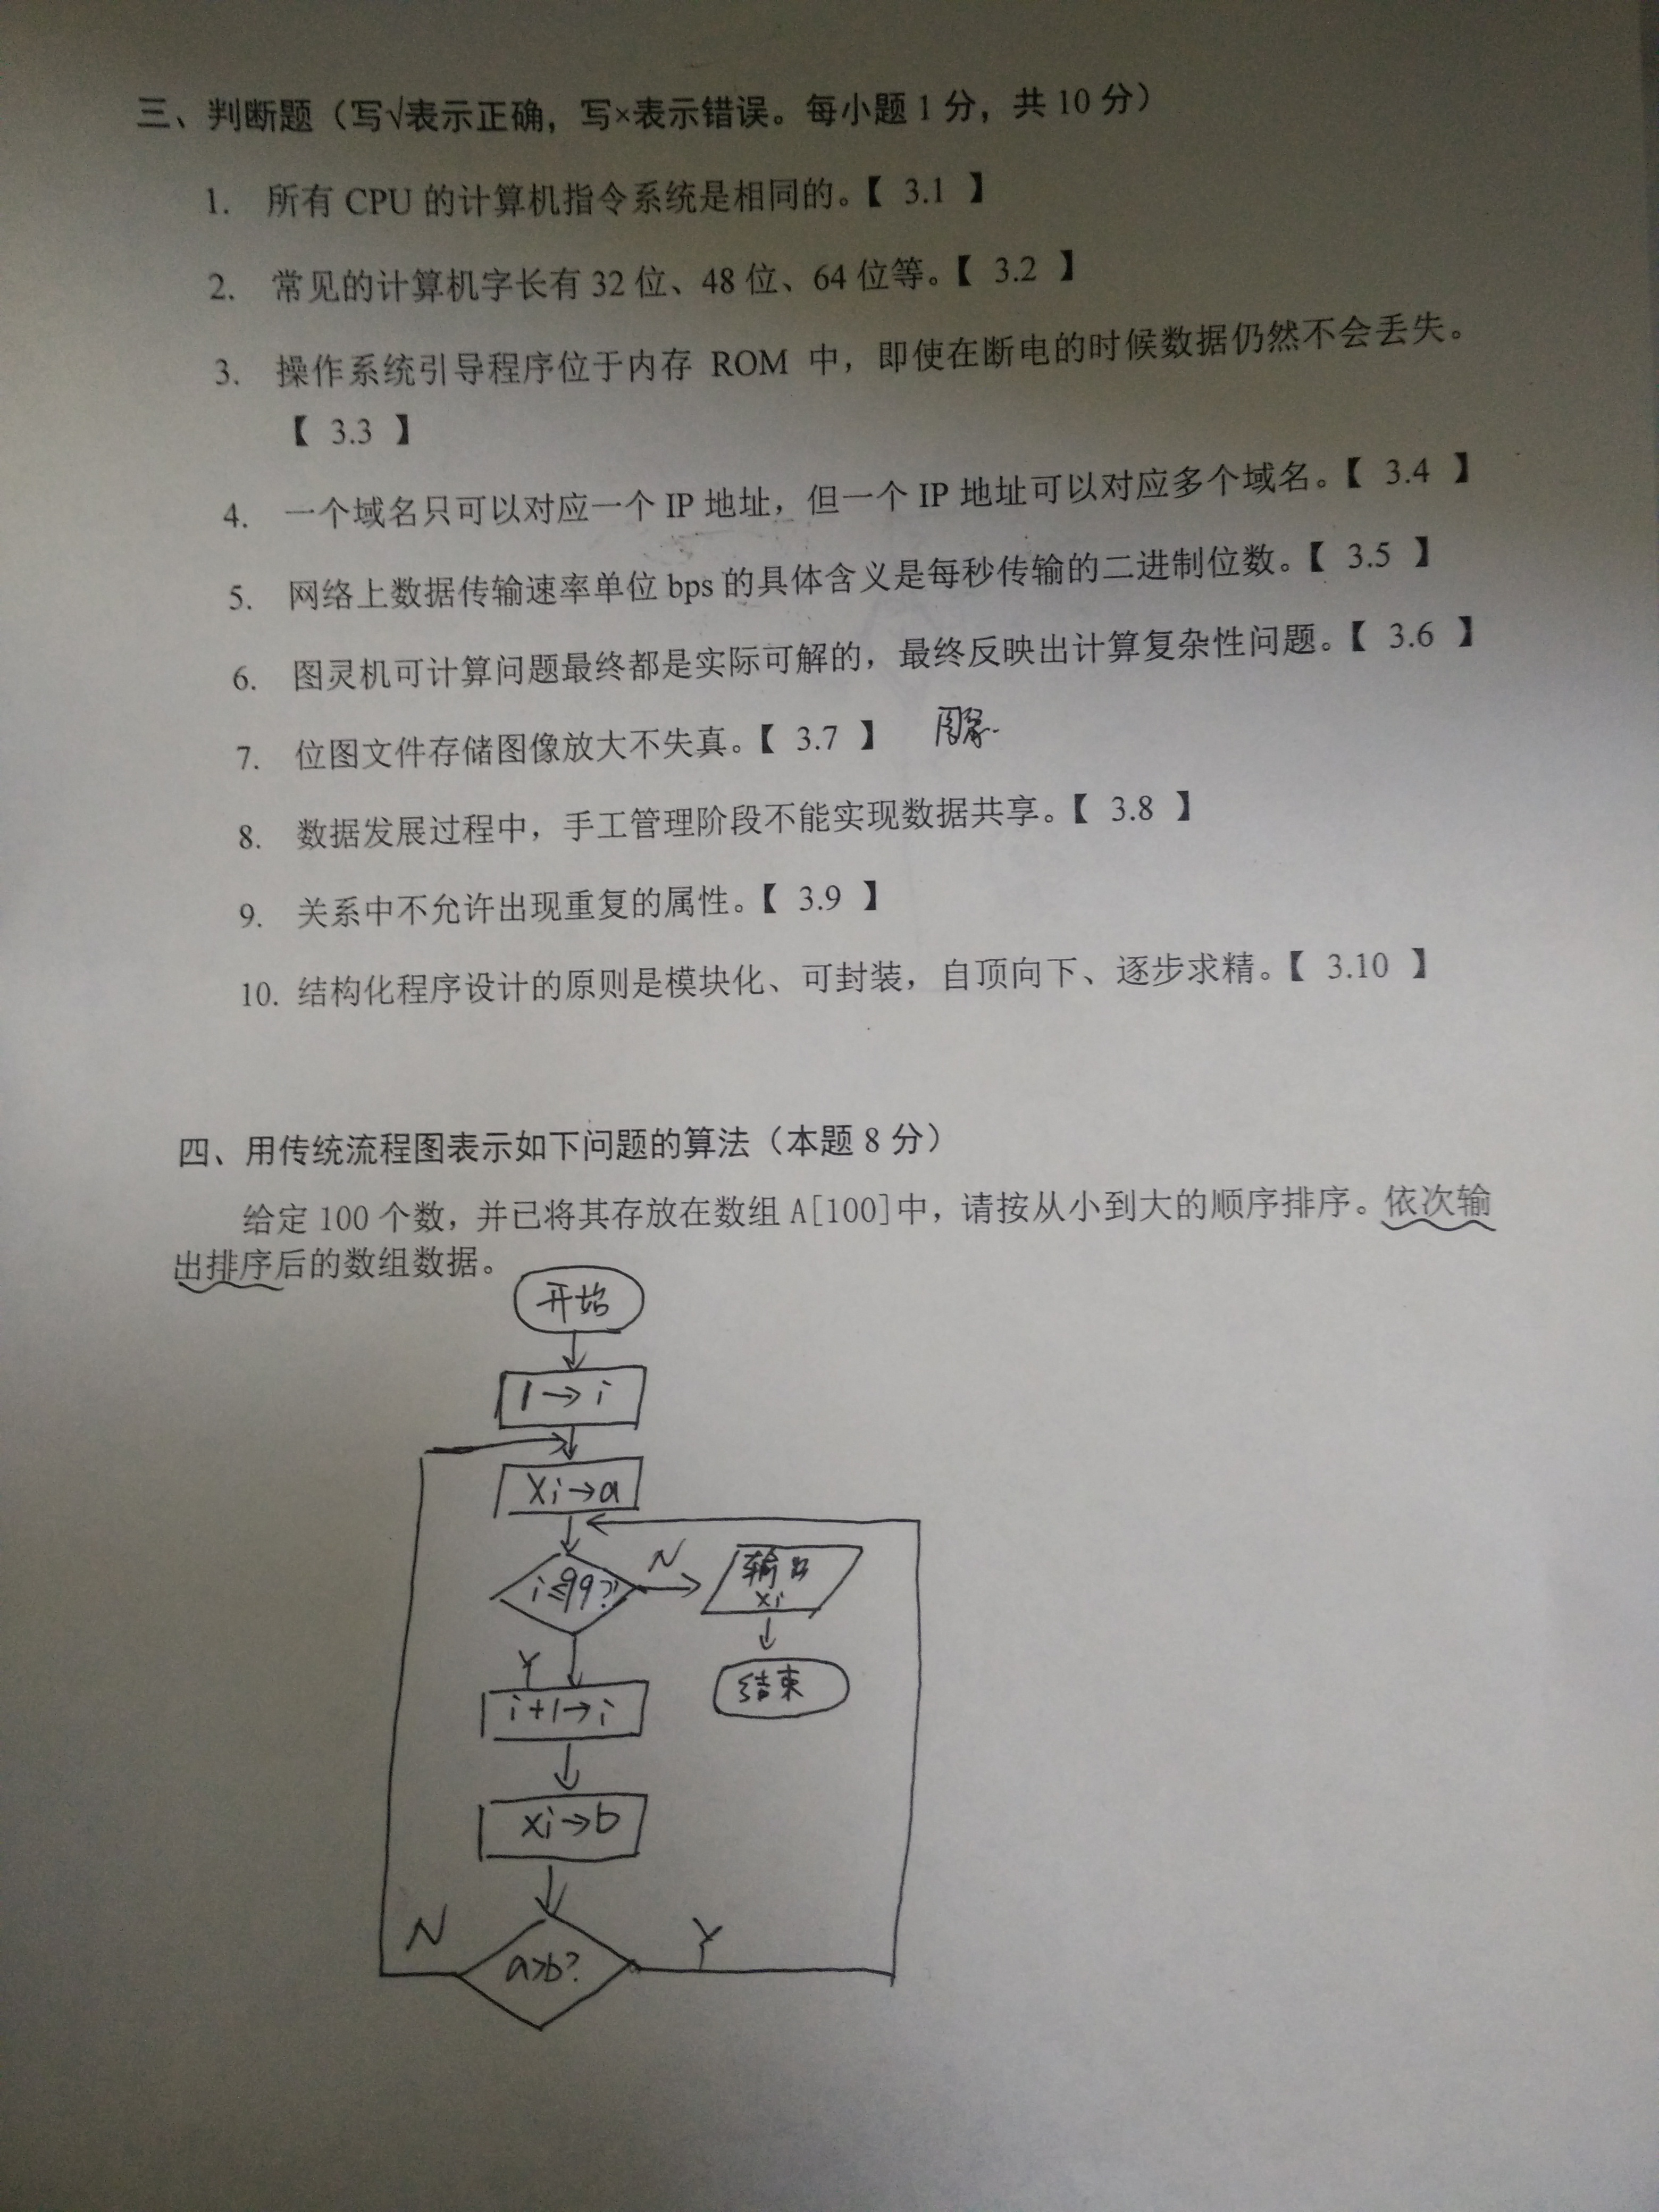 三、判断题（写√表示正确，写×表示错误。每小题1分，共10分）
1. 所有CPU的计算机指令系统是相同的。【 3.1 】
2. 常见的计算机字长有32位、48位、64位等。【 3.2 】
3. 操作系统引导程序位于内存 ROM 中，即使在断电的时候数据仍然不会丢失。
【 3.3 】
4. 一个域名只可以对应一个IP地址，但一个IP地址可以对应多个域名。【 3.4 】
5. 网络上数据传输速率单位bps的具体含义是每秒传输的二进制位数。【 3.5 】
6. 图灵机可计算问题最终都是实际可解的，最终反映出计算复杂性问题。【 3.6 】
7. 位图文件存储图像放大不失真。【 3.7 】 图象
8. 数据发展过程中，手工管理阶段不能实现数据共享。【 3.8 】
9. 关系中不允许出现重复的属性。【 3.9 】
10. 结构化程序设计的原则是模块化、可封装，自顶向下、逐步求精。【 3.10 】
四、用传统流程图表示如下问题的算法（本题8分）
给定100个数，并已将其存放在数组A[100]中，请按从小到大的顺序排序。依次输
出排序后的数组数据。
开始
1→i
Xi→a
i≤99?
N
输出
xi
Y
i+1→i
结束
xi→b
N
a>b?
Y